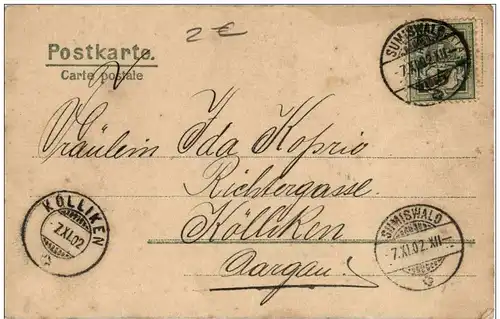 2 €
Postkarte.
Carte postale
SUMISWALD
-7.XI.02.XII-
Fräulein Ida Kosprio
Richtergasse.
Kölliken
Aargau.
KÖLLIKEN
-7.XI.02
SUMISWALD
-7.XI.02.XII-